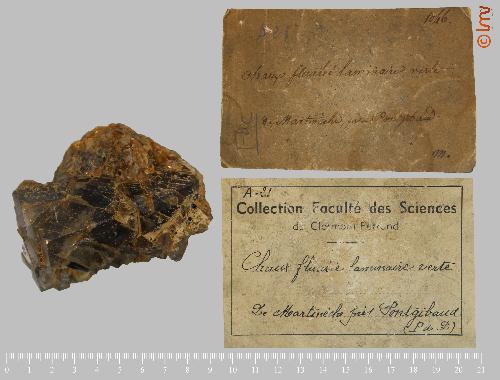 1046.
chaux fluatée laminaire verte
de Martinèche près Pontgibaud
m.
A-21
Collection Faculté des Sciences
de Clermont Ferrand
Chaux fluatée laminaire verte
De Martinèche près Pontgibaud
(P. de D.)
0 1 2 3 4 5 6 7 8 9 10 11 12 13 14 15 16 17 18 19 20 21
© lmv